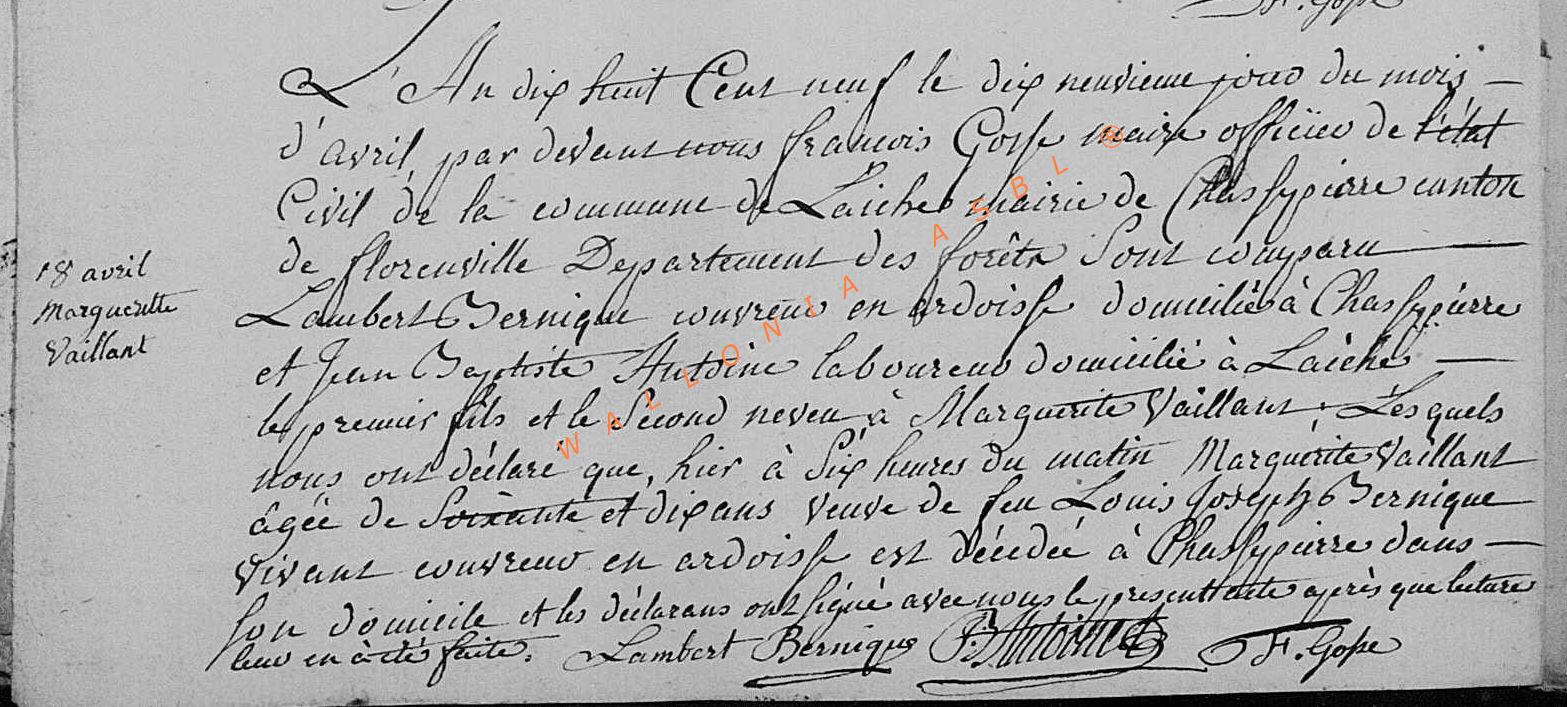 F. Gosse
L'An dix huit Cent neuf le dix neuvieme jour du mois —
d'avril par devant nous francois Gosse maire officier de l'état
Civil de la commune de Laiche mairie de Chassypierre canton
de florenville Departement des forêts Sont comparu
Lambert Bernique couvreur en ardoisse domicilié à Chassypierre
et Jean Baptiste Antoine laboureur domicilié à Laiche —
le premier fils et le Second neveu à Marguerite Vaillant. Lesquels
nous ont déclaré que, hier à Six heures du matin Marguérite Vaillant
âgée de Soixante et dix ans veuve de feu Louis Joseph Bernique
vivant couvreur en ardoisse est décédée à Chassypierre dans —
son domicile et les déclarans ont signé avec nous le present acte après que lecture
leur en a été faite. Lambert Bernique J: B: Antoine F. Gosse
18 avril
Margueritte
Vaillant
WALLONIA ASBL ®